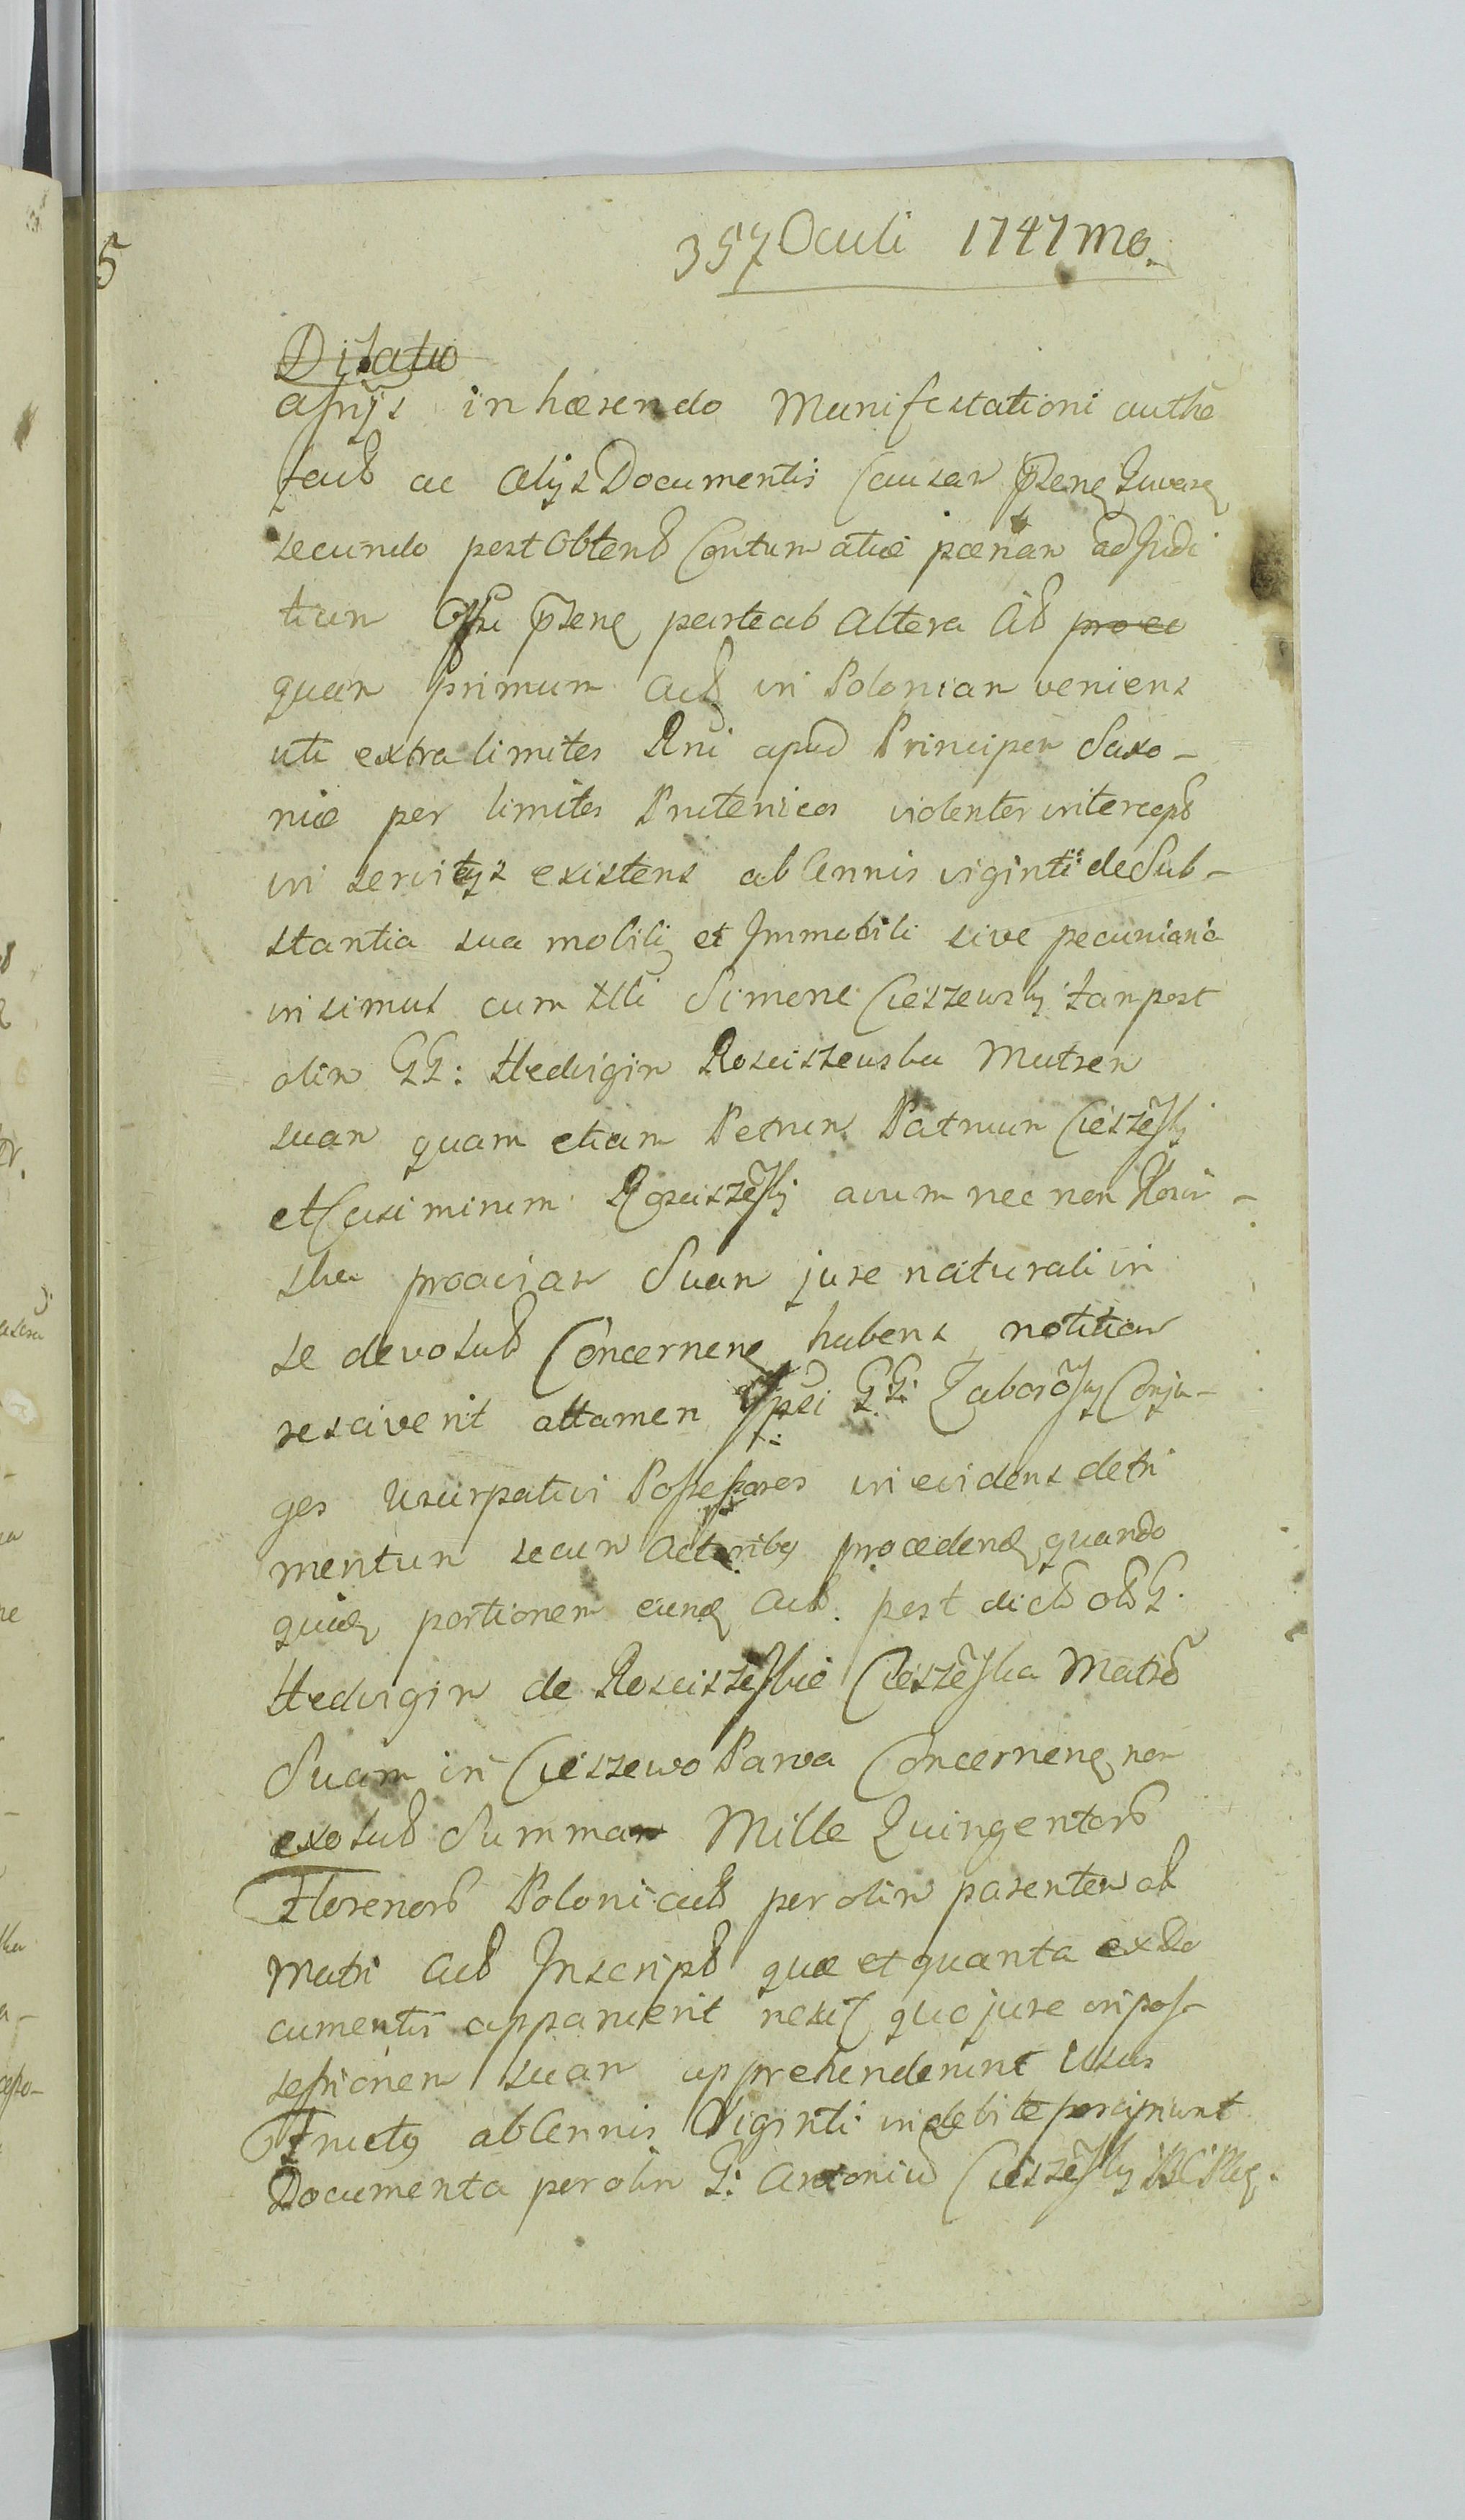 357 Oculi 1747 mo.
Dilatio
inhærendo Manifestationi authe
ac alijs Documentis Causam
secundo post Obtent Contumatiæ pœnam adjudi
tiam parte ab altera Ab pro eo
quam primum Act in Poloniam veniens
uti extra limites Rni apud Principem Saxo-
niæ per limites Prutenicos violenter intercept
in servitys existens ab Annis viginti de Sub-
stantia sua mobili et Immobili sive pecuniaria
insimul cum Simone Cieszewsky tam post
olim GG: Hedvigim Rosciszewska Matrem
suam quam etiam Petrum Patruum Cieszesky
et Casimirum Roscisze͠sky avum nec non
ska proaviam Suam jure naturali in
se devolut Concernen habens notitiam
resciverit attamen Ipsi GG: Zaboro͠sky Conju-
ges Usurpativi Possessores in evidens detri
mentum secum Actoribus proceden quando
quidem portionem eund Act. post dict ol G.
Hedvigim de Roscisze͠skie Ciesze͠ska Matre
Suam in Cieszewo Parva Concernen non
exolut Summam Mille Quingentor
Florenor Polonical per olim parentem
Matri Act Inscript quæ et quanta ex Do
cumentis apparuerit quo jure in pos-
sessionem suam apprehenderunt Usus
Fructus ab Annis Viginti indebite percipiunt
Documenta per olim G: Antonium Ciesze͠sky